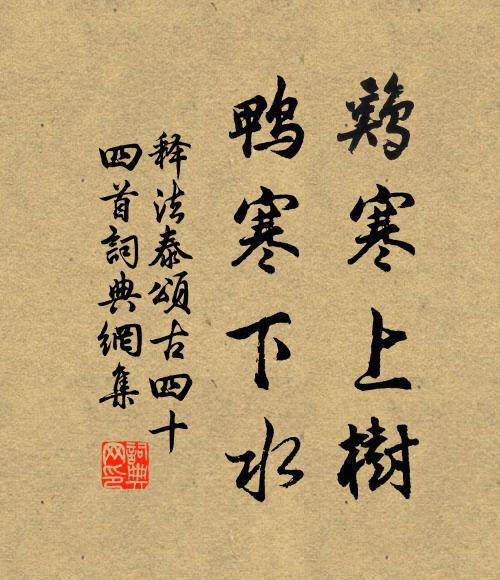 鷄寒上樹
鴨寒下水
释法泰頌古四十
四首詞典網集
詞典
网印